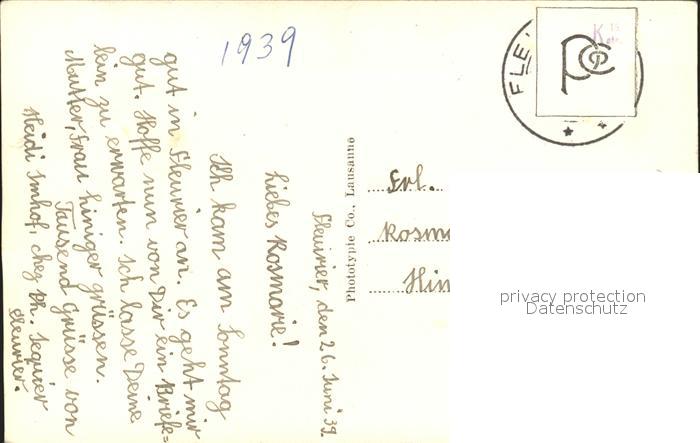 1939
Fleurier, den 26. Juni 39.
Liebes Rosmarie!
Ich kam am Sonntag
gut in Fleurier an. Es geht mir
gut. Hoffe nun von Dir ein Briefe=
lein zu erwarten. Ich lasse Deine
Mutter, Frau Hiniger grüssen.
Tausend Grüsse von
Heidi Imhof, chez Ph. Jequier
Fleurier.
Phototypie Co., Lausanne
FLE
Frl.
Rosm
Hin
privacy protection
Datenschutz